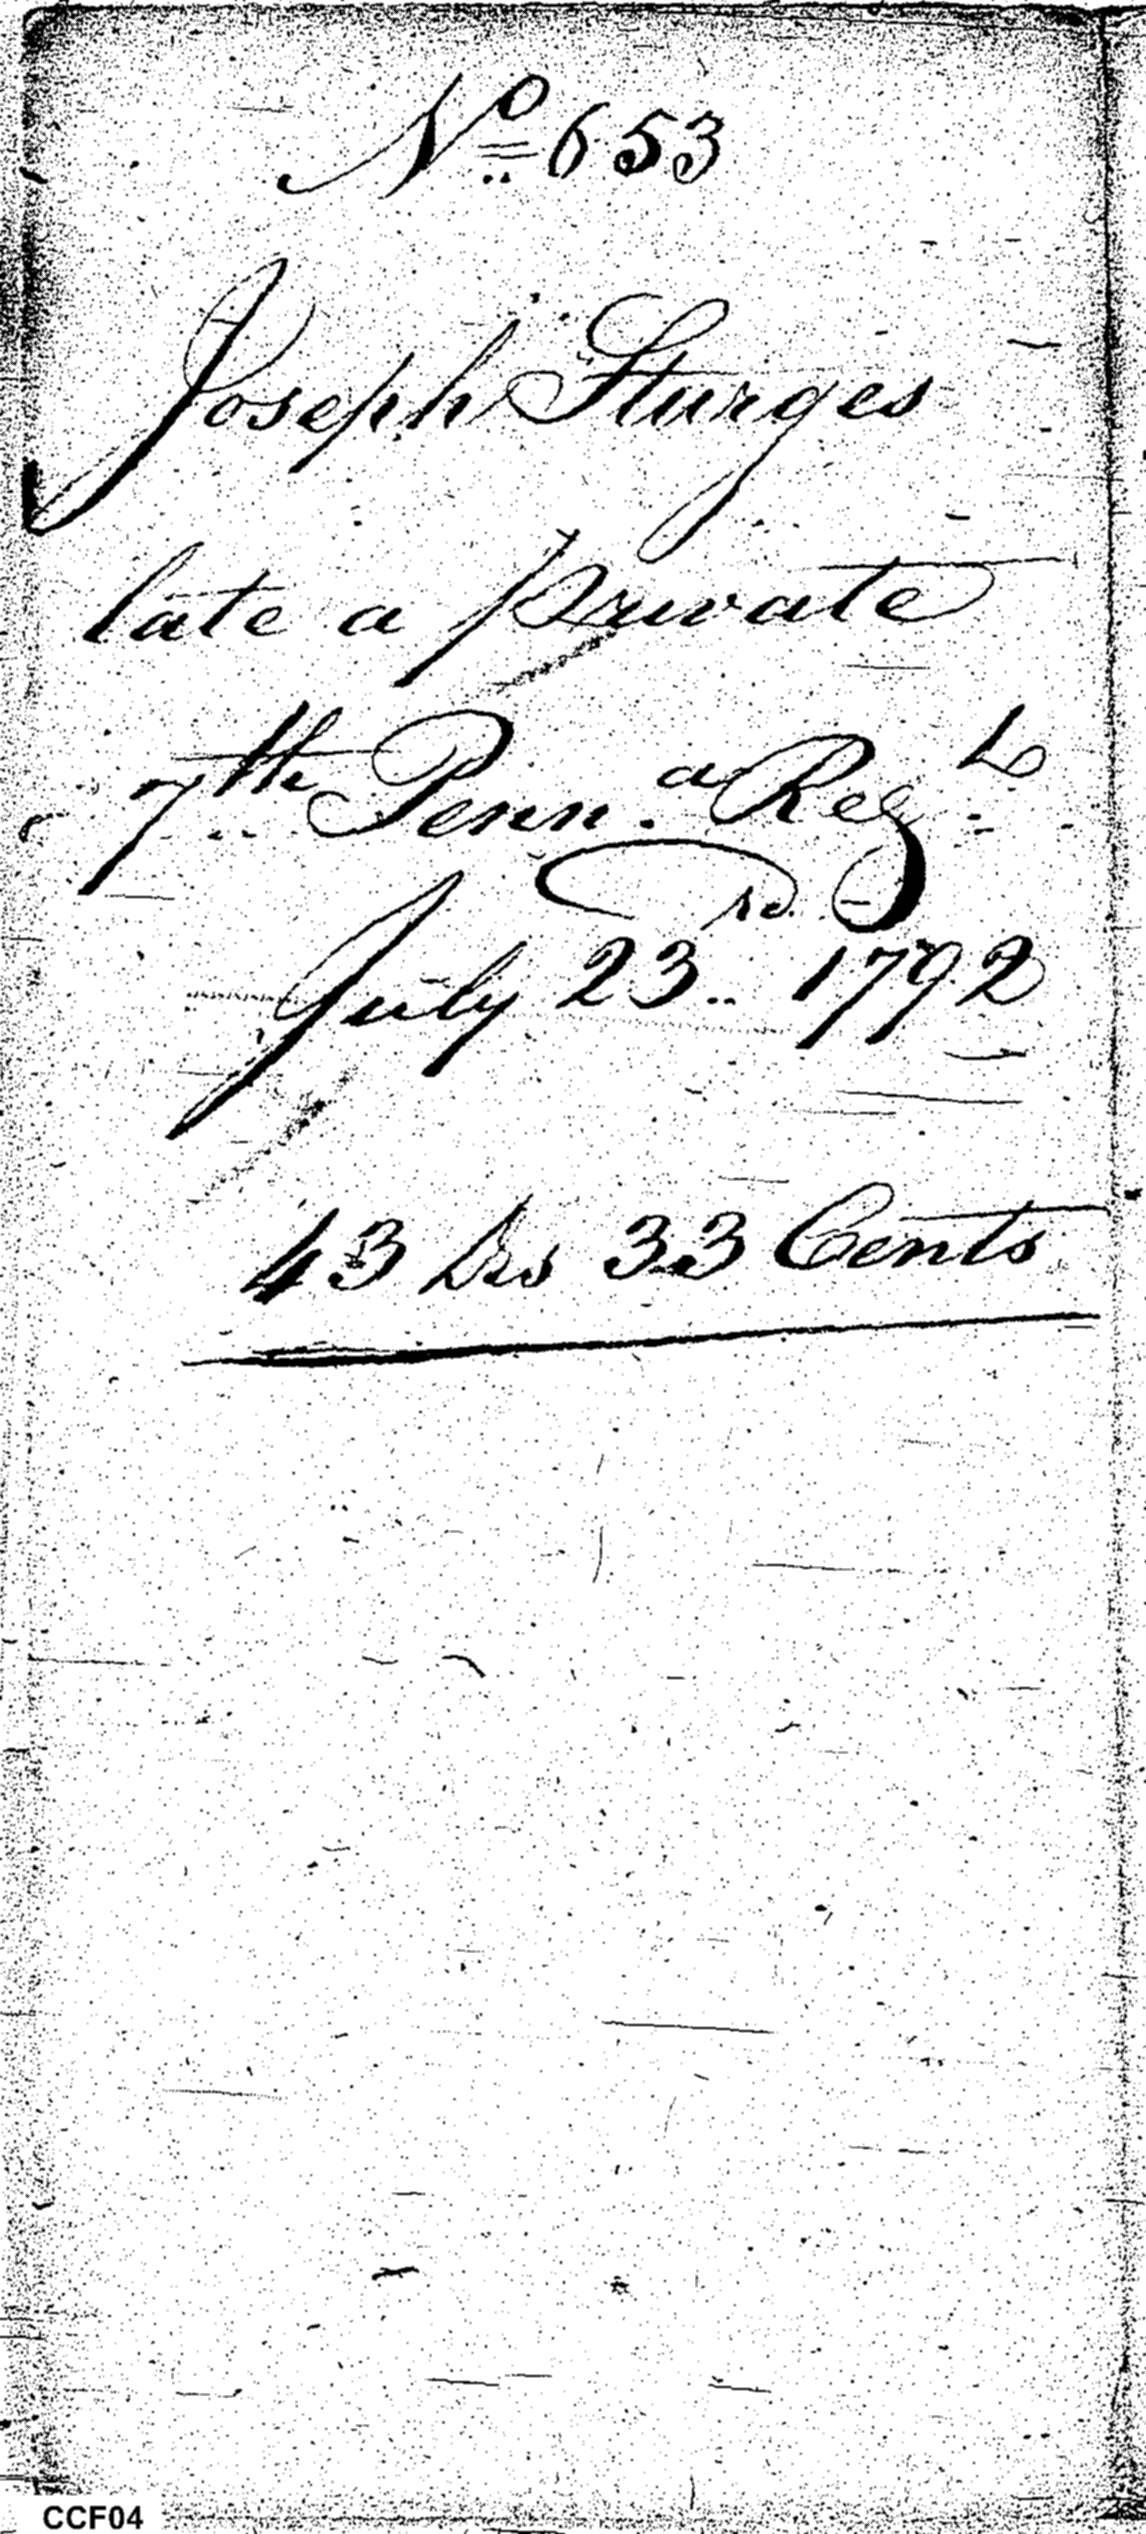 No 653
Joseph Sturges
late a private
7th Penn.a Regt
July 23rd 1792
43 Drs 33 Cents
CCF04